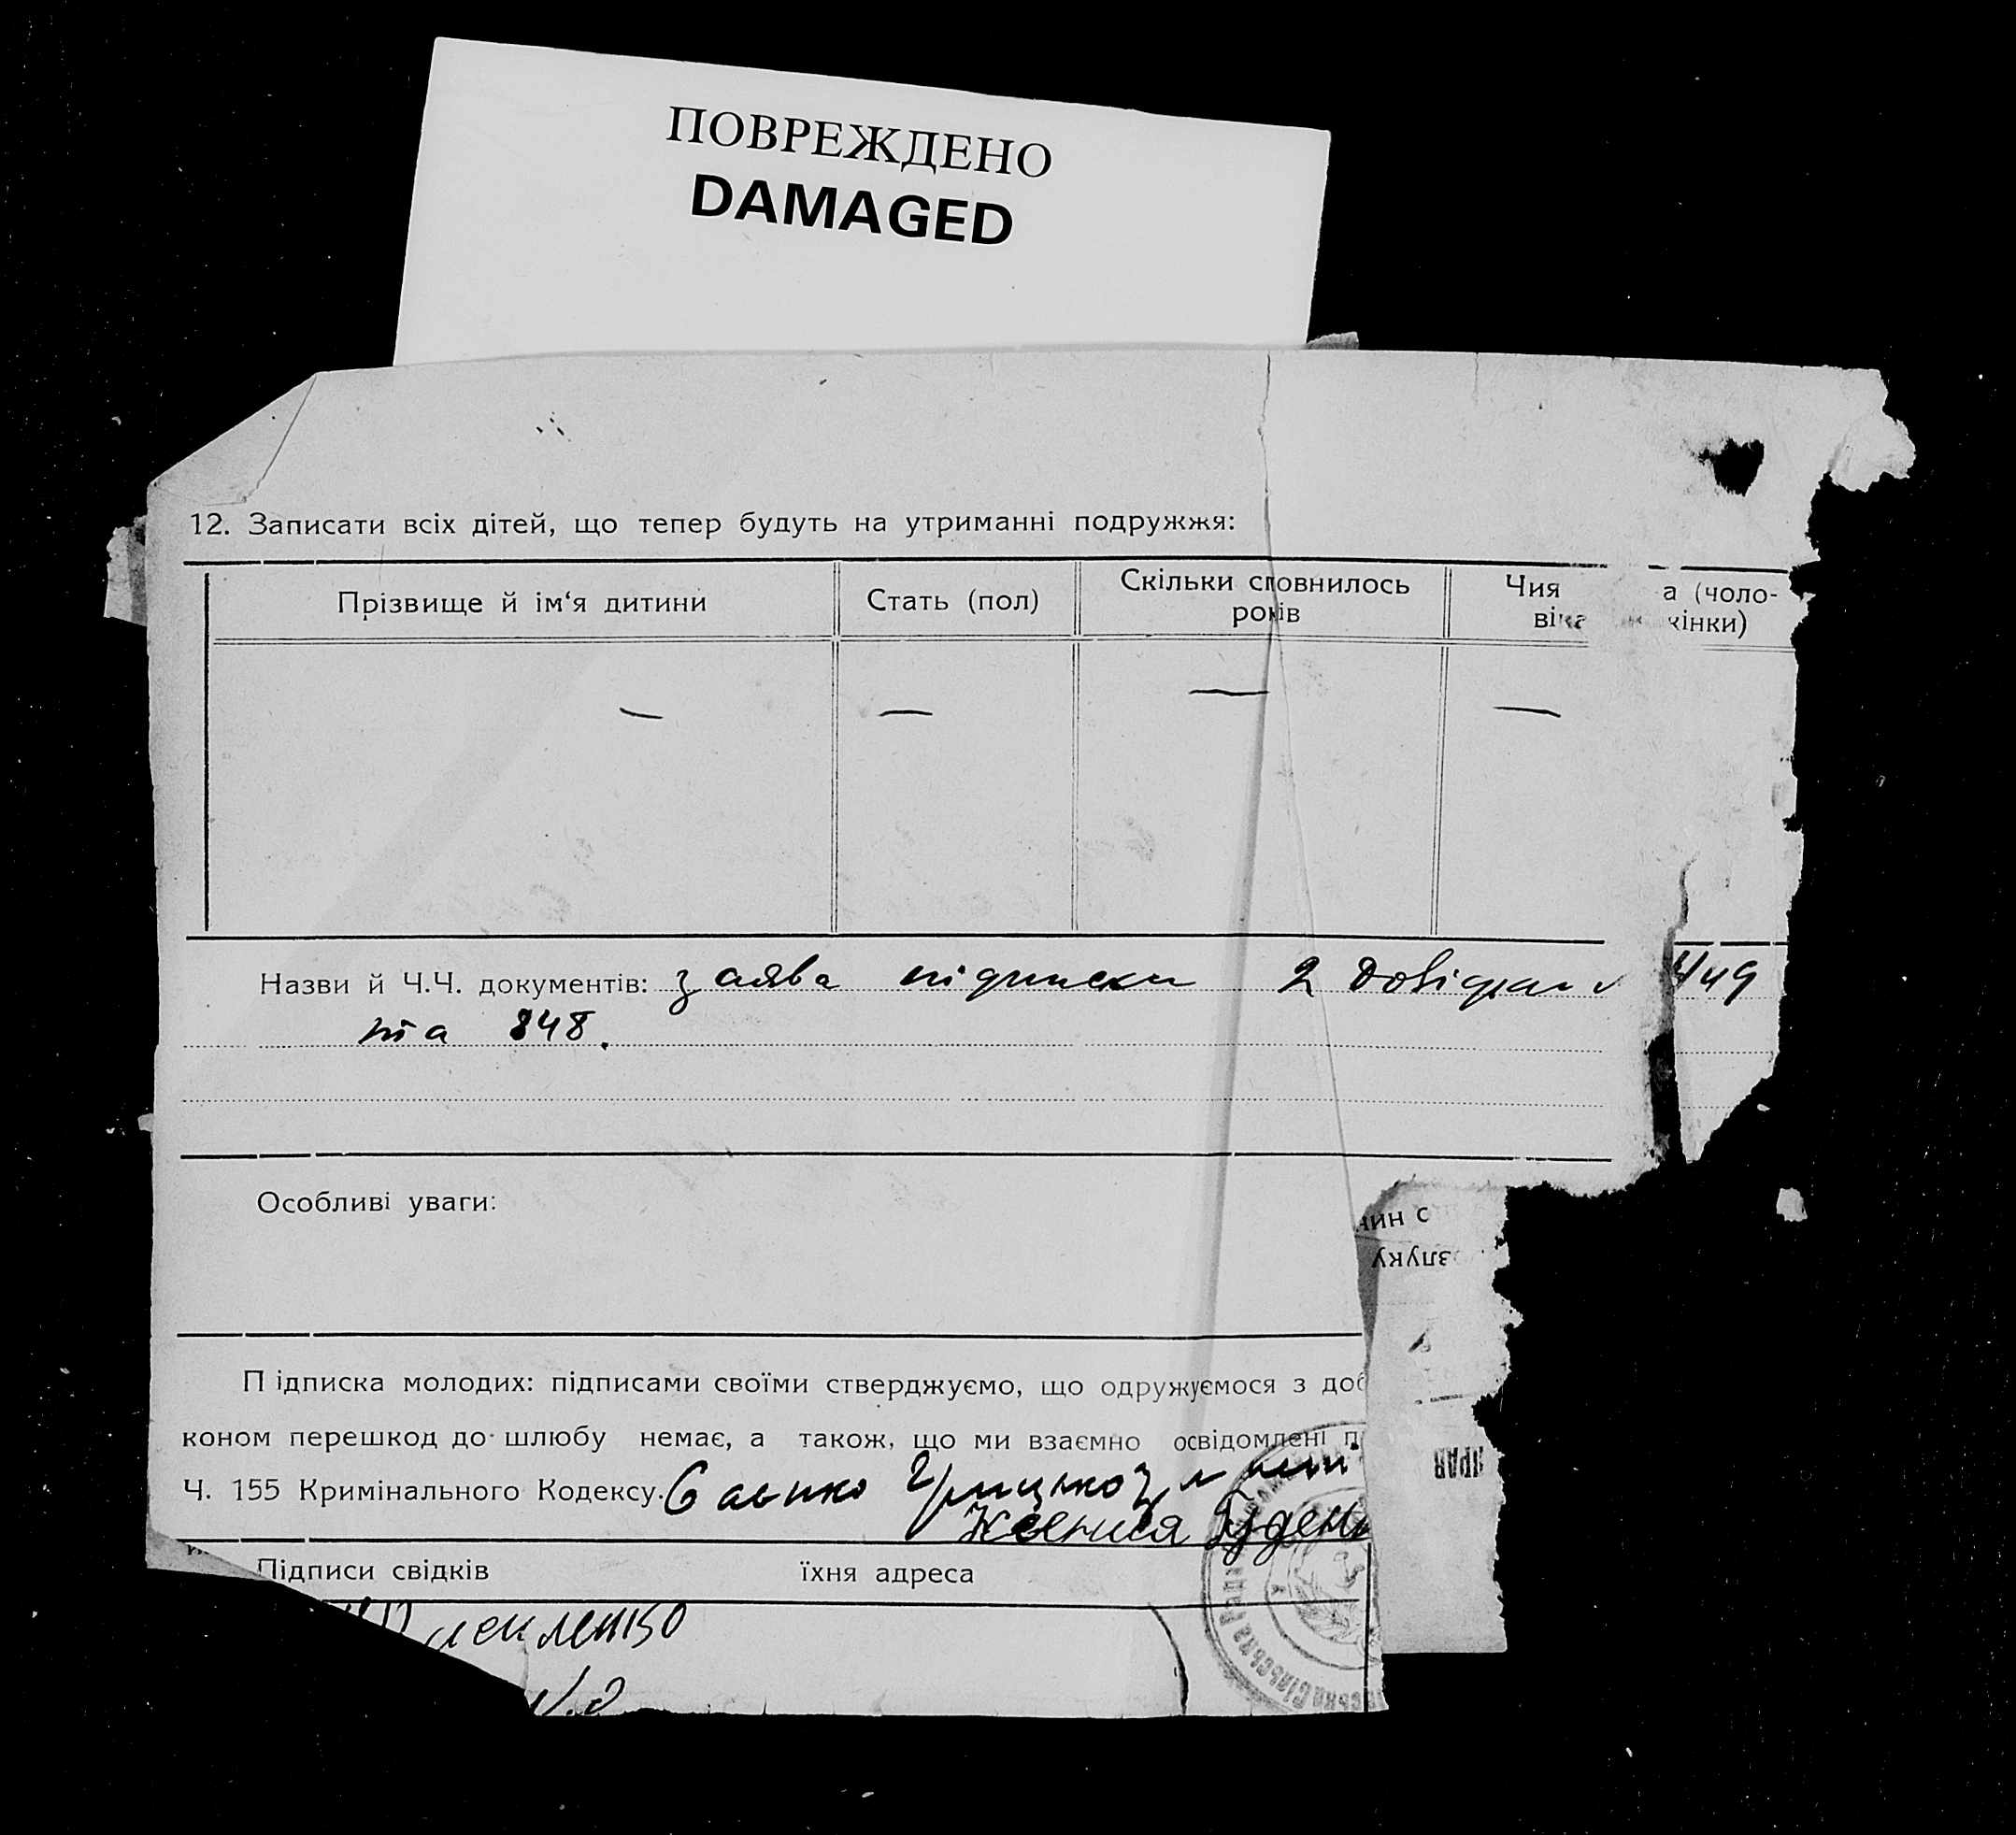 ПОВРЕЖДЕНО
DAMAGED
12. Записати всіх дітей, що тепер будуть на утриманні подружжя:
Прізвище й ім‘я дитини
Стать (пол)
Скільки сповнилось
років
Чия а (чоло-
віка жінки)
Назви й Ч.Ч. документів: заява підписки 2 довідки 449
та 848.
Особливі уваги:
Підписка молодих: підписами своїми стверджуємо, що одружуємося з доб
коном перешкод до шлюбу немає, а також, що ми взаємно освідомлені п
Ч. 155 Кримінального Кодексу. Грицько
Ксения
Підписи свідків їхня адреса